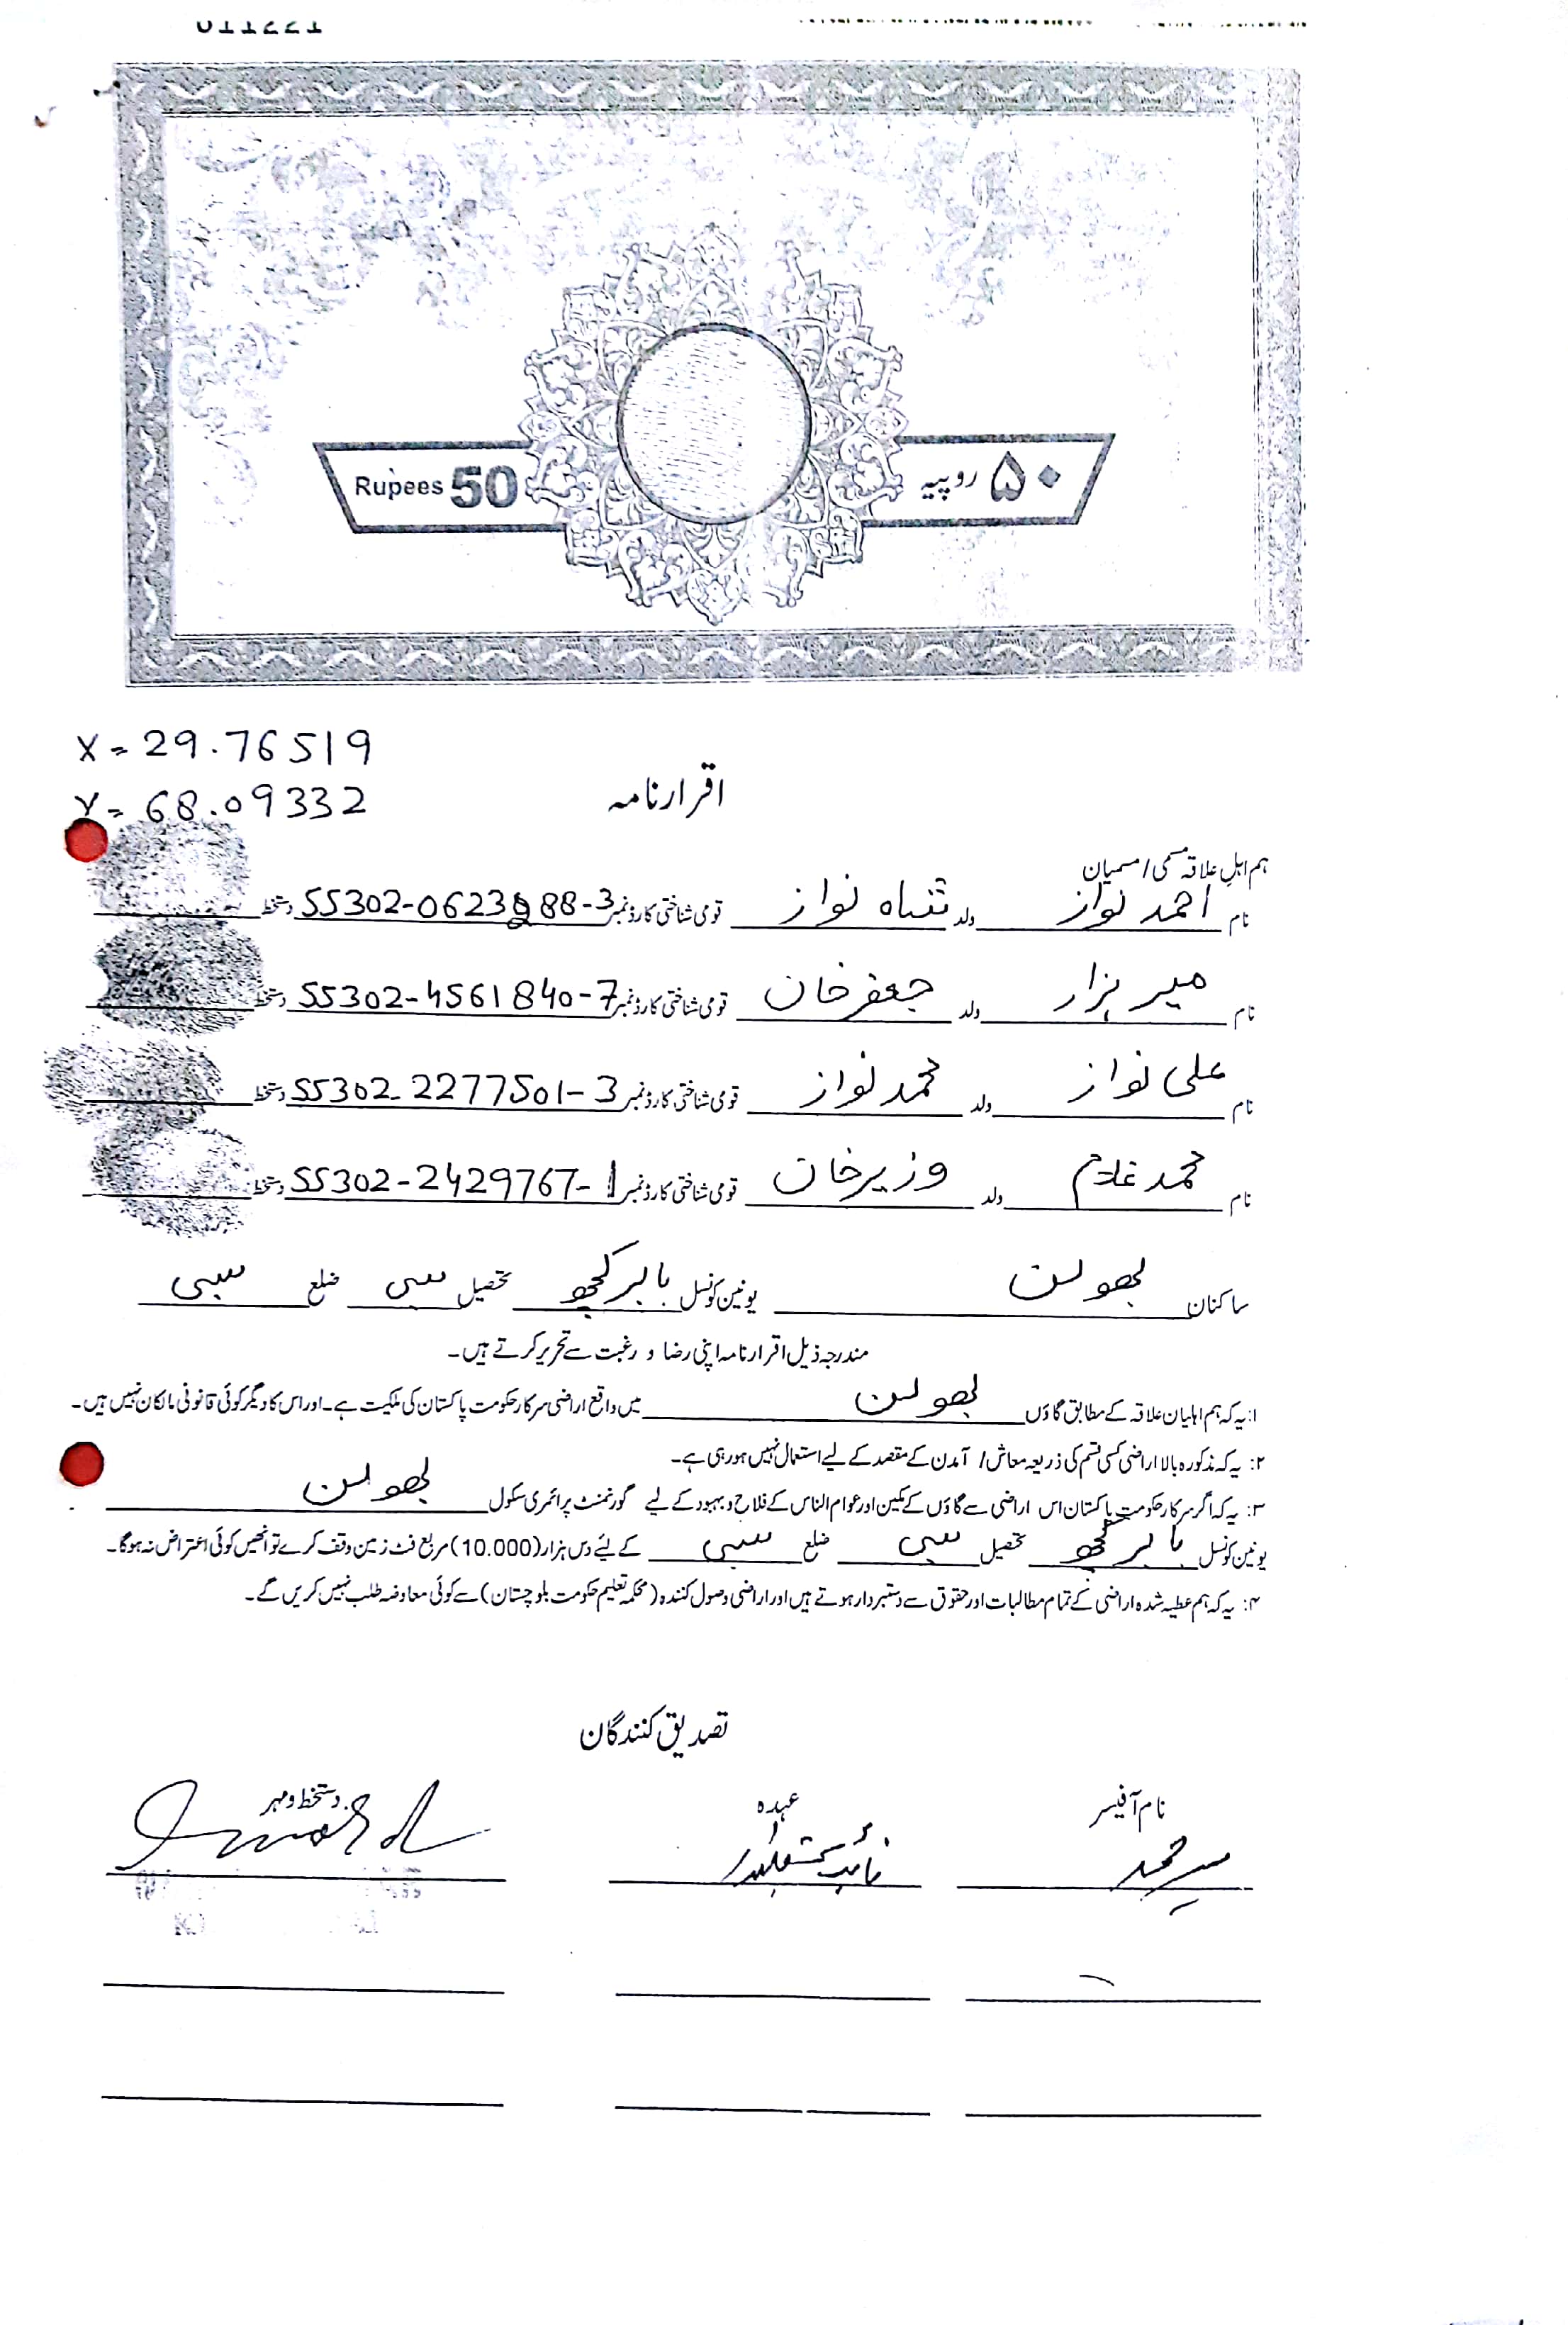 Rupees 50
۵۰ روپیہ
X = 29.76519
Y = 68.09332
اقرارنامہ
ہم اہلِ علاقہ مسمی / مسمیان
نام احمد نواز ولد شاہ نواز قومی شناختی کارڈ نمبر 55302-0623988-3 دستخط
نام میر ہزار ولد جعفر خان قومی شناختی کارڈ نمبر 55302-4561840-7 دستخط
نام علی نواز ولد محمد نواز قومی شناختی کارڈ نمبر 55302-2277501-3 دستخط
نام محمد غلام ولد وزیر خان قومی شناختی کارڈ نمبر 55302-2429767-1 دستخط
ساکنان یونین کونسل بابر کچھ تحصیل سبی ضلع سبی
مندرجہ ذیل اقرار نامہ اپنی رضا و رغبت سے تحریر کرتے ہیں۔
۱: یہ کہ ہم اہلیان علاقہ کے مطابق گاؤں میں واقع اراضی سرکار حکومت پاکستان کی ملکیت ہے۔ اور اس کا دیگر کوئی قانونی مالکان نہیں ہیں۔
۲: یہ کہ مذکورہ بالا اراضی کسی قسم کی ذریعہ معاش / آمدن کے مقصد کے لیے استعمال نہیں ہو رہی ہے۔
۳: یہ کہ اگر سرکار حکومت پاکستان اس اراضی سے گاؤں کے مکین اور عوام الناس کے فلاح و بہبود کے لیے گورنمنٹ پرائمری سکول
یونین کونسل بابر کچھ تحصیل سبی ضلع سبی کے لیئے دس ہزار (10.000) مربع فٹ زمین وقف کرے تو انھیں کوئی اعتراض نہ ہوگا۔
۴: یہ کہ ہم عطیہ شدہ اراضی کے تمام مطالبات اور حقوق سے دستبردار ہوتے ہیں اور اراضی وصول کنندہ (محکمہ تعلیم حکومت بلوچستان) سے کوئی معاوضہ طلب نہیں کریں گے۔
تصدیق کنندگان
نام آفیسر عہدہ دستخط و مہر
میر محمد نائب تحصیلدار